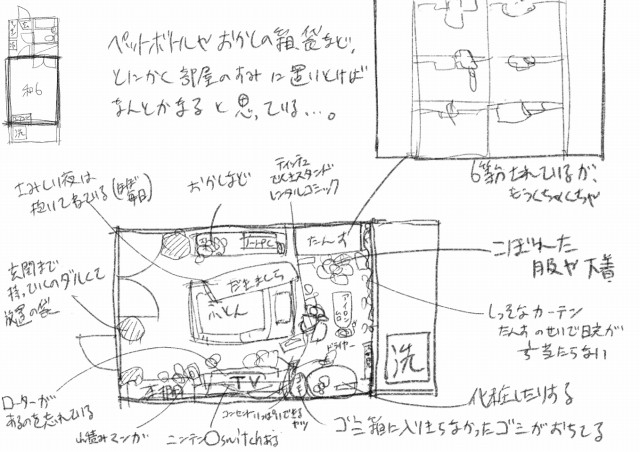 和6
洗
ペットボトルや おかしの箱、袋など、
とにかく部屋のすみに置いとけば
なんとかなると思っている…。
6等分されているが、
もうぐちゃぐちゃ
さみしい夜は
抱いて寝ている(ほぼ毎日)
おかしなど
ティッシュ
でんきスタンド
レンタルコミック
ノートPC
たんす
こぼれた
服や下着
玄関まで
持っていくのダルくて
放置の袋
だきまくら
ふとん
アイロン
ドライヤー
しっそなカーテン
たんすのせいで日光が
当たらない
洗
本棚
TV
ローターが
あるのを忘れている
山積みマンガ
ニンテン〇switchある
コンセントいっぱいできる
ヤツ
化粧したりする
ゴミ箱に入りきらなかったゴミがおちてる